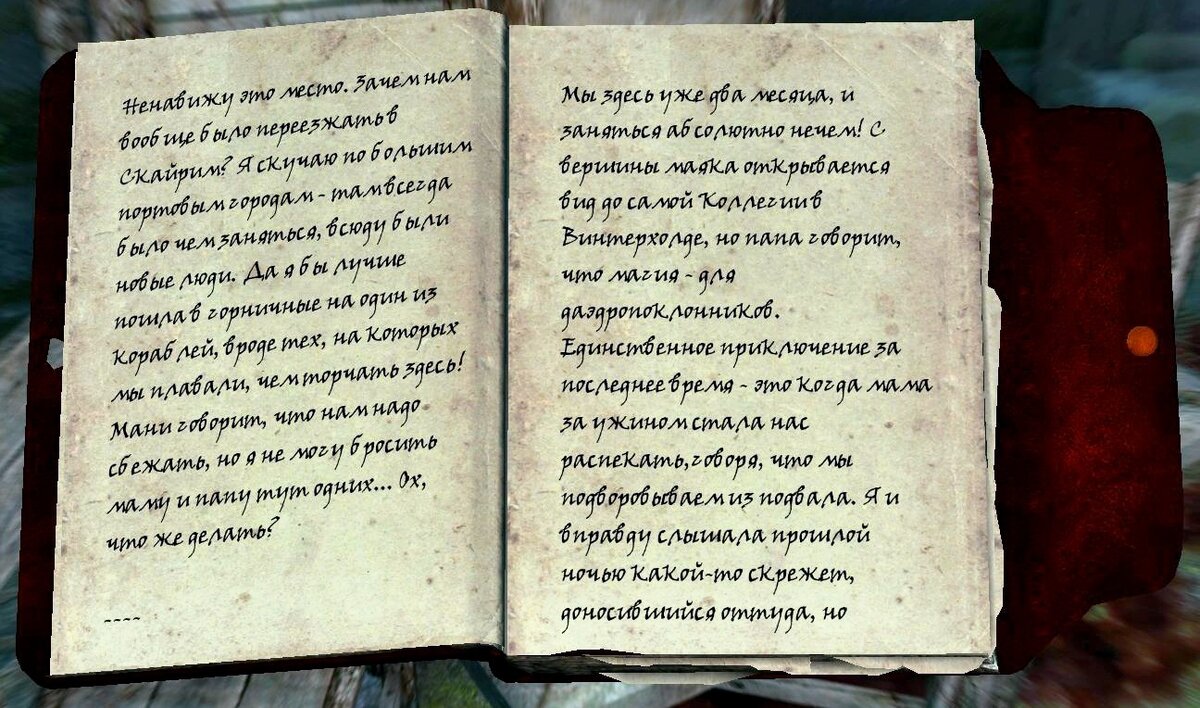 Ненавижу это место. Зачем нам
вообще было переезжать в
Скайрим? Я скучаю по большим
портовым городам - там всегда
было чем заняться, всюду были
новые люди. Да я бы лучше
пошла в горничные на один из
кораблей, вроде тех, на которых
мы плавали, чем торчать здесь!
Мани говорит, что нам надо
сбежать, но я не могу бросить
маму и папу тут одних... Ох,
что же делать?
----
Мы здесь уже два месяца, и
заняться абсолютно нечем! С
вершины маяка открывается
вид до самой Коллегии в
Винтерхолде, но папа говорит,
что магия - для
даэдропоклонников.
Единственное приключение за
последнее время - это когда мама
за ужином стала нас
распекать, говоря, что мы
подворовываем из подвала. Я и
вправду слышала прошлой
ночью какой-то скрежет,
доносившийся оттуда, но